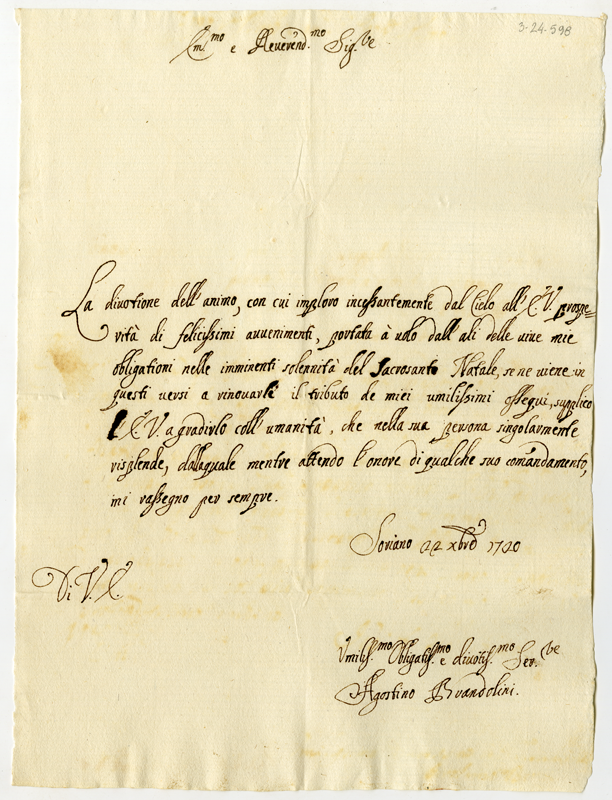 3-24-598
Em.mo e Reverend.mo Sig.re
La divotione dell'animo, con cui imploro incessantemente dal Cielo all'E.V. prospe=
rità di felicissimi avvenimenti, portata à volo dall'ali delle vive mie
obligationi nelle imminenti solennità del Sacrosanto Natale, se ne viene in
questi versi a rinovarle il tributo de miei umilissimi ossequi, supplico
l'E.V. a gradirlo coll'umanità, che nella sua persona singolarmente
risplende, dallaquale mentre attendo l'onore di qualche suo comandamento,
mi rassegno per sempre.
Soriano 22 xbre 1720
Di V.E.
Umiliss.mo Obligatiss.mo e divotiss.mo Ser.re
Agostino Brandolini.